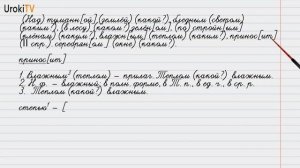 UrokiTV
(Над) туманн[ой] (землёй) (какой?), бледным (светом)
(каким?), (в лесу) (каком?) зелён[ом], (по) стройн[ым]
(каким?), влажн[ым] (теплом) (каким?), принос[ит]
(II спр.), серебрян[ом] (окне) (каком?).
принос[ит]
1. Влажным¹ (теплом) – прилаг. Теплом (какой?) влажним.
2. Н. ф. – влажный, в полн. форме, в Т. п., в ед. ч., в ср. р.
3. Теплом (какой?) влажним.
степью¹ – [